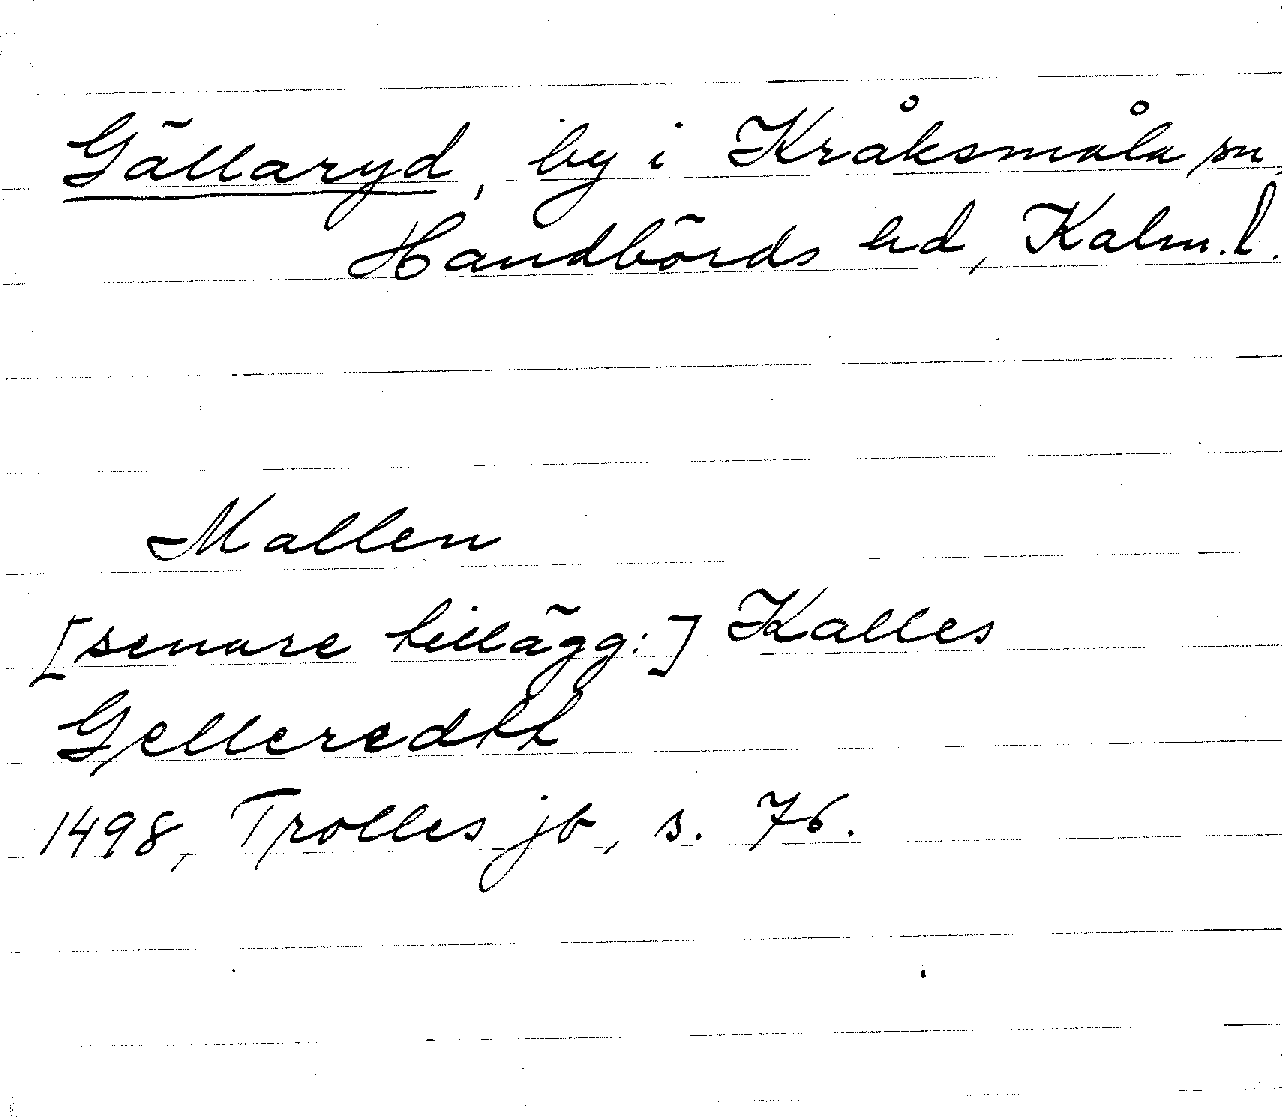 Gällaryd, by i Kråksmåla sn,
Handbörds hd, Kalm. l.
Mallen
[senare tillägg:] Kalles
Gelleredhh
1498, Trolles jb, s. 76.